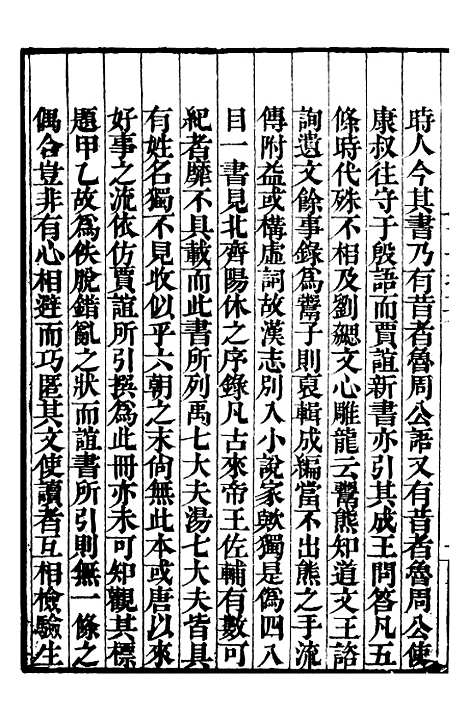 時人今其書乃有昔者魯周公語又有昔者魯周公使
康叔往守于殷語而賈誼新書亦引其成王問答凡五
條時代殊不相及劉勰文心雕龍云鬻熊知道文王諮
詢遺文餘事錄爲鬻子則裒輯成編當不出熊之手流
傳附益或構虛詞故漢志别入小說家歟獨是僞四八
目一書見北齊陽休之序錄凡古來帝王佐輔有數可
紀者靡不具載而此書所列禹七大夫湯七大夫皆具
有姓名獨不見收似乎六朝之末尙無此本或唐以來
好事之流依仿賈誼所引撰爲此冊亦未可知觀其標
題甲乙故爲佚脫錯亂之狀而誼書所引則無一條之
偶合豈非有心相避而巧匿其文使讀者互相檢驗生